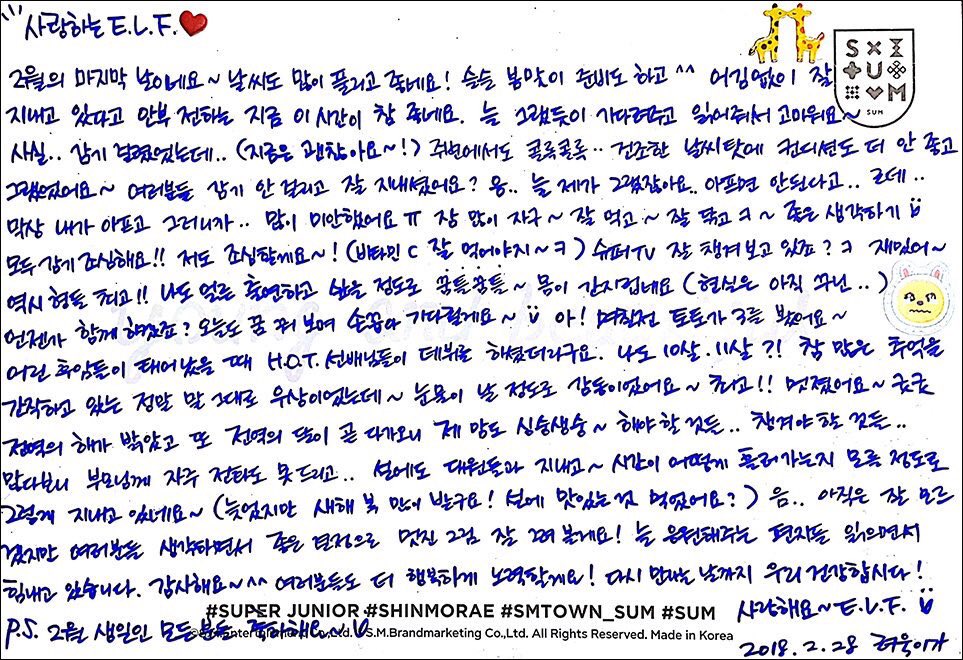 사랑하는 E.L.F.
SUM
SUM
2월의 마지막 날이네요~ 날씨도 많이 풀리고 좋네요! 슬슬 봄맞이 준비도 하고^^ 어김없이 잘
지내고 있다고 안부 전하는 지금 이 시간이 참 좋네요. 늘 그랬듯이 기다려주고 읽어줘서 고마워요~
사실.. 감기 걸렸었는데.. (지금은 괜찮아요~!) 주변에서도 콜록콜록.. 건조한 날씨탓에 컨디션도 더 안 좋고
그랬었어요~ 여러분들 감기 안 걸리고 잘 지내셨어요? 응.. 늘 제가 그랬잖아요. 아프면 안된다고.. 근데..
막상 내가 아프고 그러니까.. 많이 미안했어요 ㅠ 잠 많이 자구~ 잘 먹고~ 잘 씻고 ㅋ~ 좋은 생각하기
모두 감기 조심해요!! 저도 조심할게요~! (비타민 C 잘 먹어야지~ㅋ) 슈퍼TV 잘 챙겨보고 있죠? ㅋ 재밌어~
역시 형들 최고!! 나도 얼른 출연하고 싶을 정도로 꿈틀꿈틀~ 몸이 간지럽네요 (현실은 아직 군인..)
언젠가 함께 하겠죠? 오늘도 꿈 꿔 보며 손꼽아 기다릴게요~ 아! 며칠전 토토가3를 봤어요~
어린 휴암들이 태어났을 때 H.O.T. 선배님들이 데뷔를 하셨더라구요. 나도 10살. 11살?! 참 많은 추억을
간직하고 있는 정말 말 그대로 우상이었는데~ 눈물이 날 정도로 감동이었어요~ 최고!! 멋졌어요~ 굿굿
전역의 해가 밝았고 또 전역의 달이 곧 다가오니 제 맘도 싱숭생숭~ 해야 할 것들.. 챙겨야 할 것들..
많다보니 부모님께 자주 전화도 못드리고.. 설에도 대원들과 지내고~ 시간이 어떻게 흘러가는지 모를 정도로
그렇게 지내고 있네요~ (늦었지만 새해 복 많이 받구요! 설에 맛있는 것 먹었어요?) 음.. 아직은 잘 모르
겠지만 여러분들 생각하면서 좋은 표정으로 멋진 그림 잘 그려 볼게요! 늘 응원해주는 편지들 읽으면서
힘내고 있습니다. 감사해요~^^ 여러분들도 더 행복하게 노력할게요! 다시 만나는 날까지 우리 건강합시다!
#SUPER JUNIOR #SHINMORAE #SMTOWN_SUM #SUM
사랑해요~ E.L.F.
P.S. 2월 생일인 모든분들 축하해요~
S.M.Entertainment Co.,Ltd. / S.M.Brandmarketing Co.,Ltd. All Rights Reserved. Made in Korea
2018. 2. 28 려욱이가